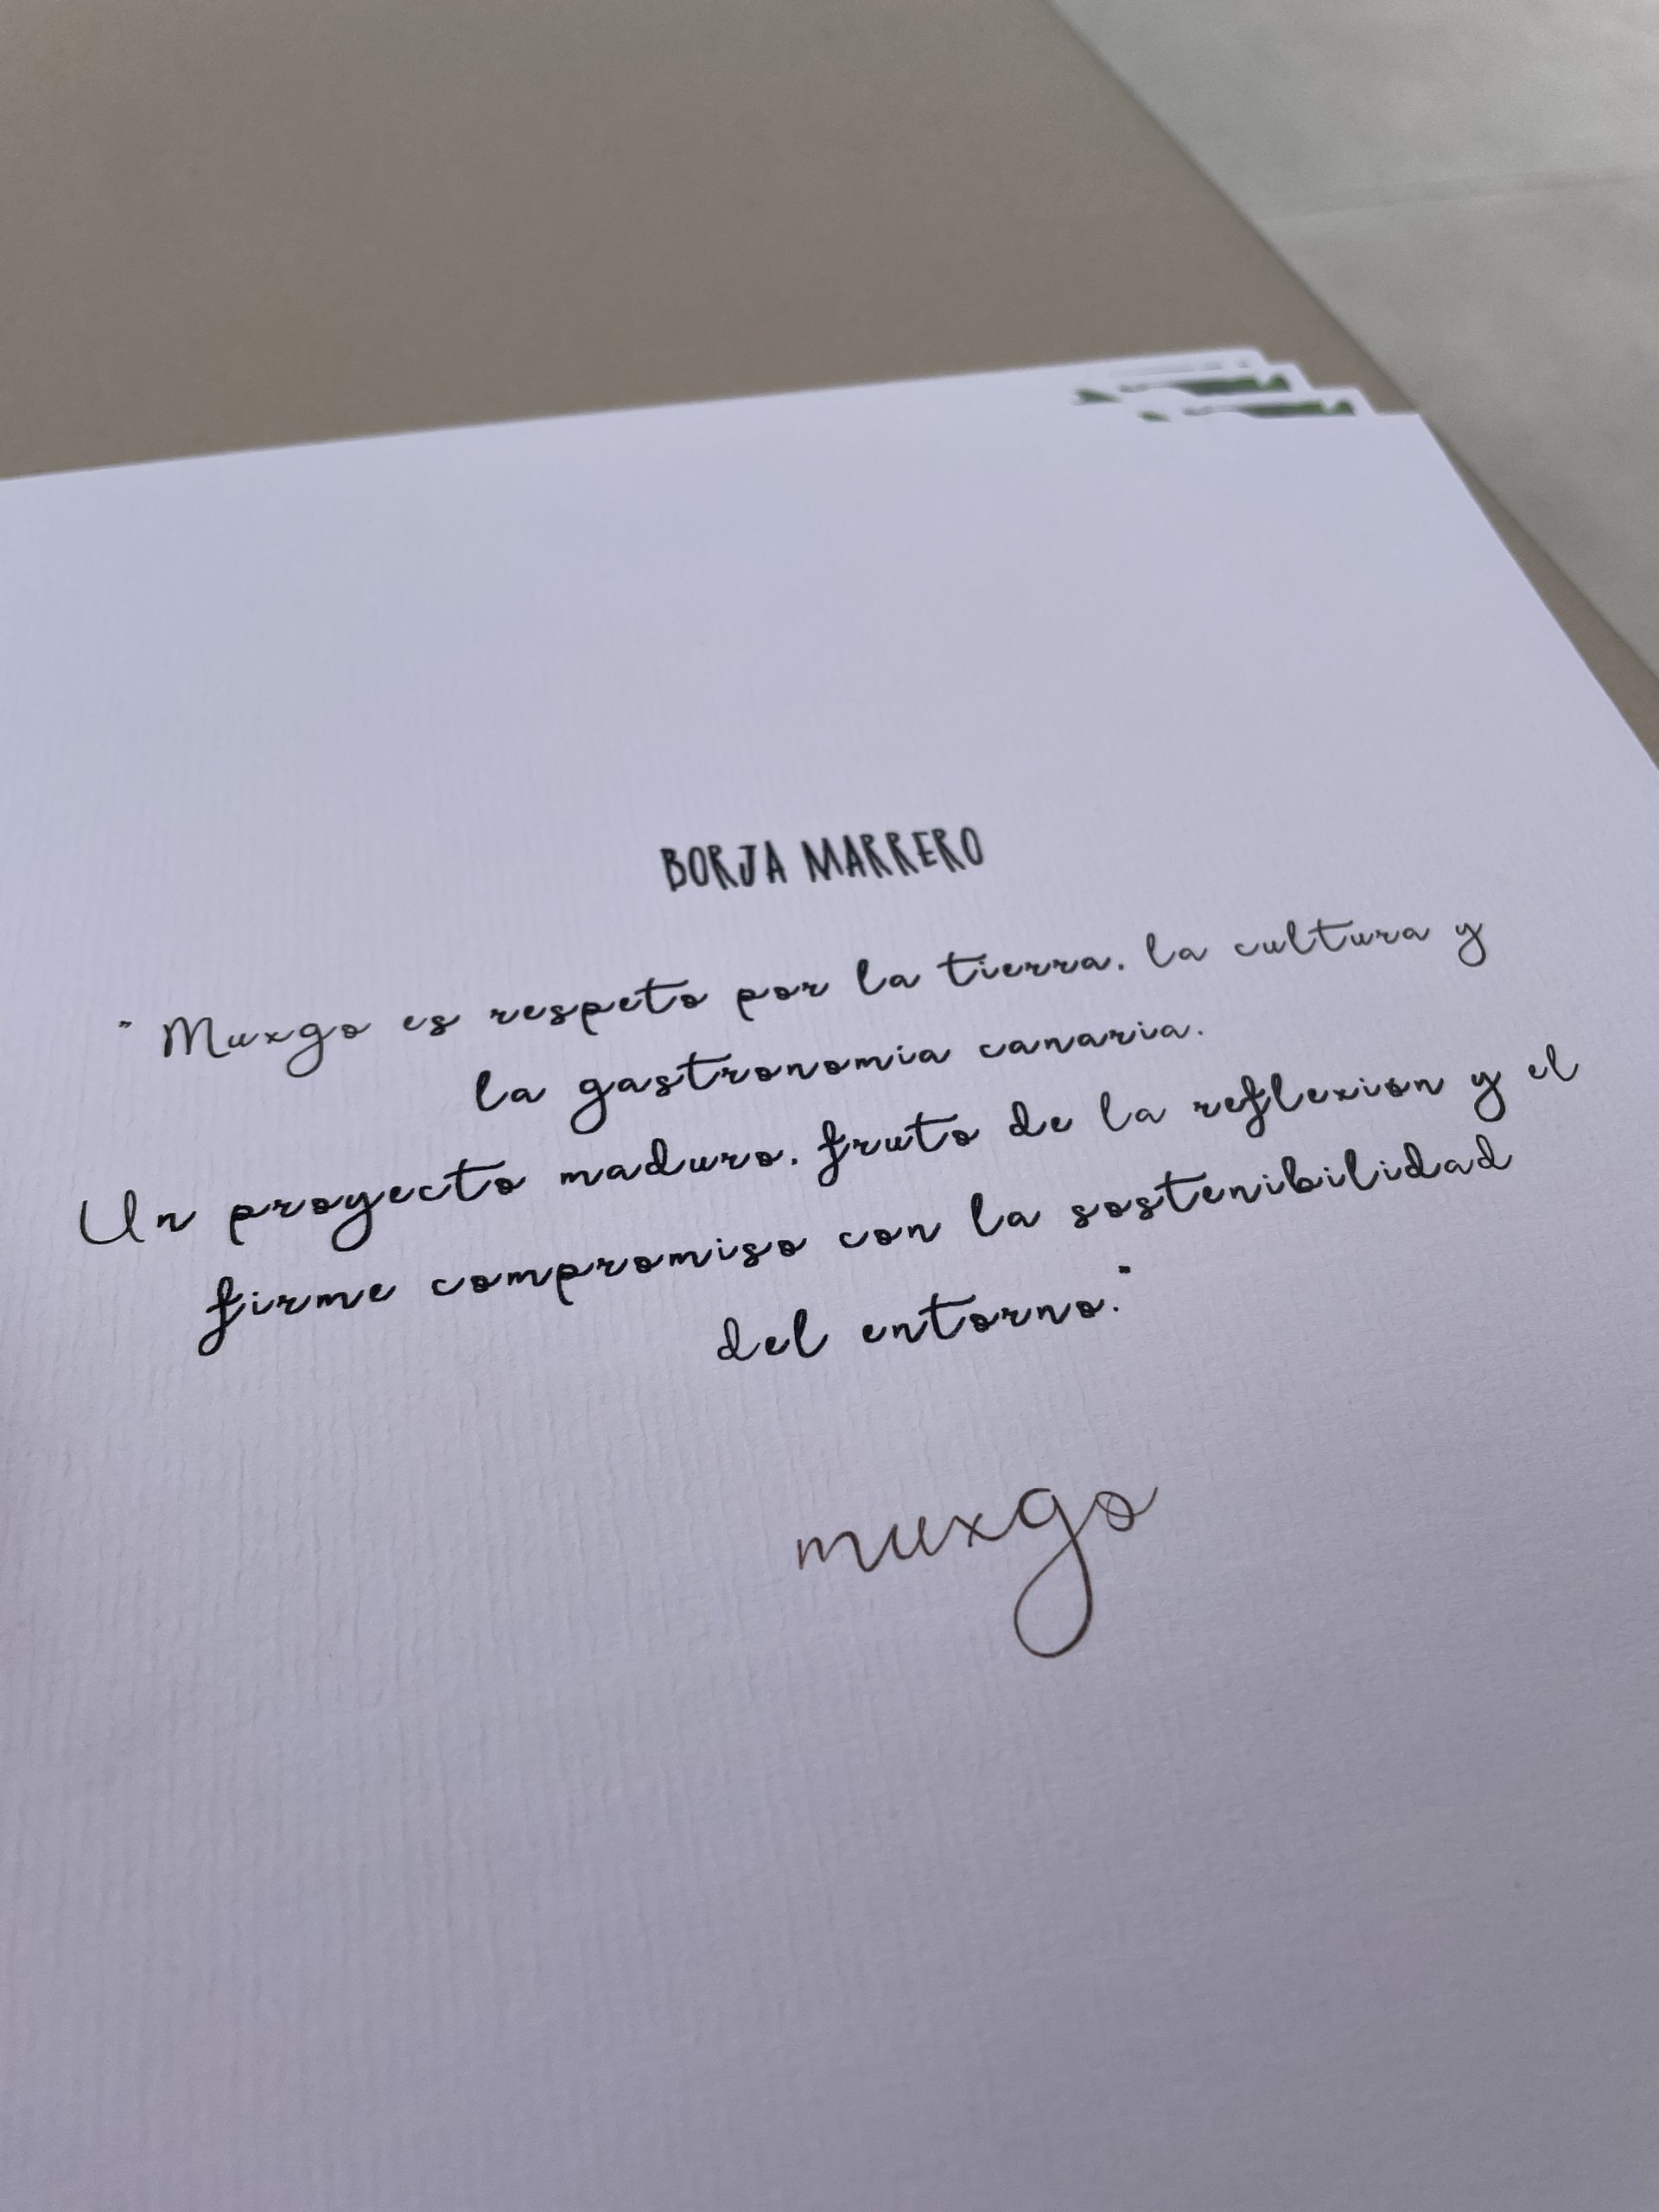 BORJA MARRERO
" Muxgo es respeto por la tierra, la cultura y
la gastronomía canaria.
Un proyecto maduro, fruto de la reflexión y el
firme compromiso con la sostenibilidad
del entorno."
muxgo